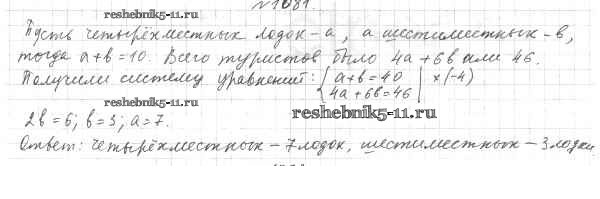 №1081.
reshebnik5-11.ru
Пусть четырёхместных лодок - a, а шестиместных - в,
тогда a+в=10. Всего туристов было 4a+6в или 46.
Получили систему уравнений: { a+в=40 | ×(-4)
reshebnik5-11.ru 4a+6в=46
reshebnik5-11.ru
2в=6; в=3; a=7.
Ответ: четырёхместных - 7 лодок, шестиместных - 3 лодки
reshebnik5-11.ru